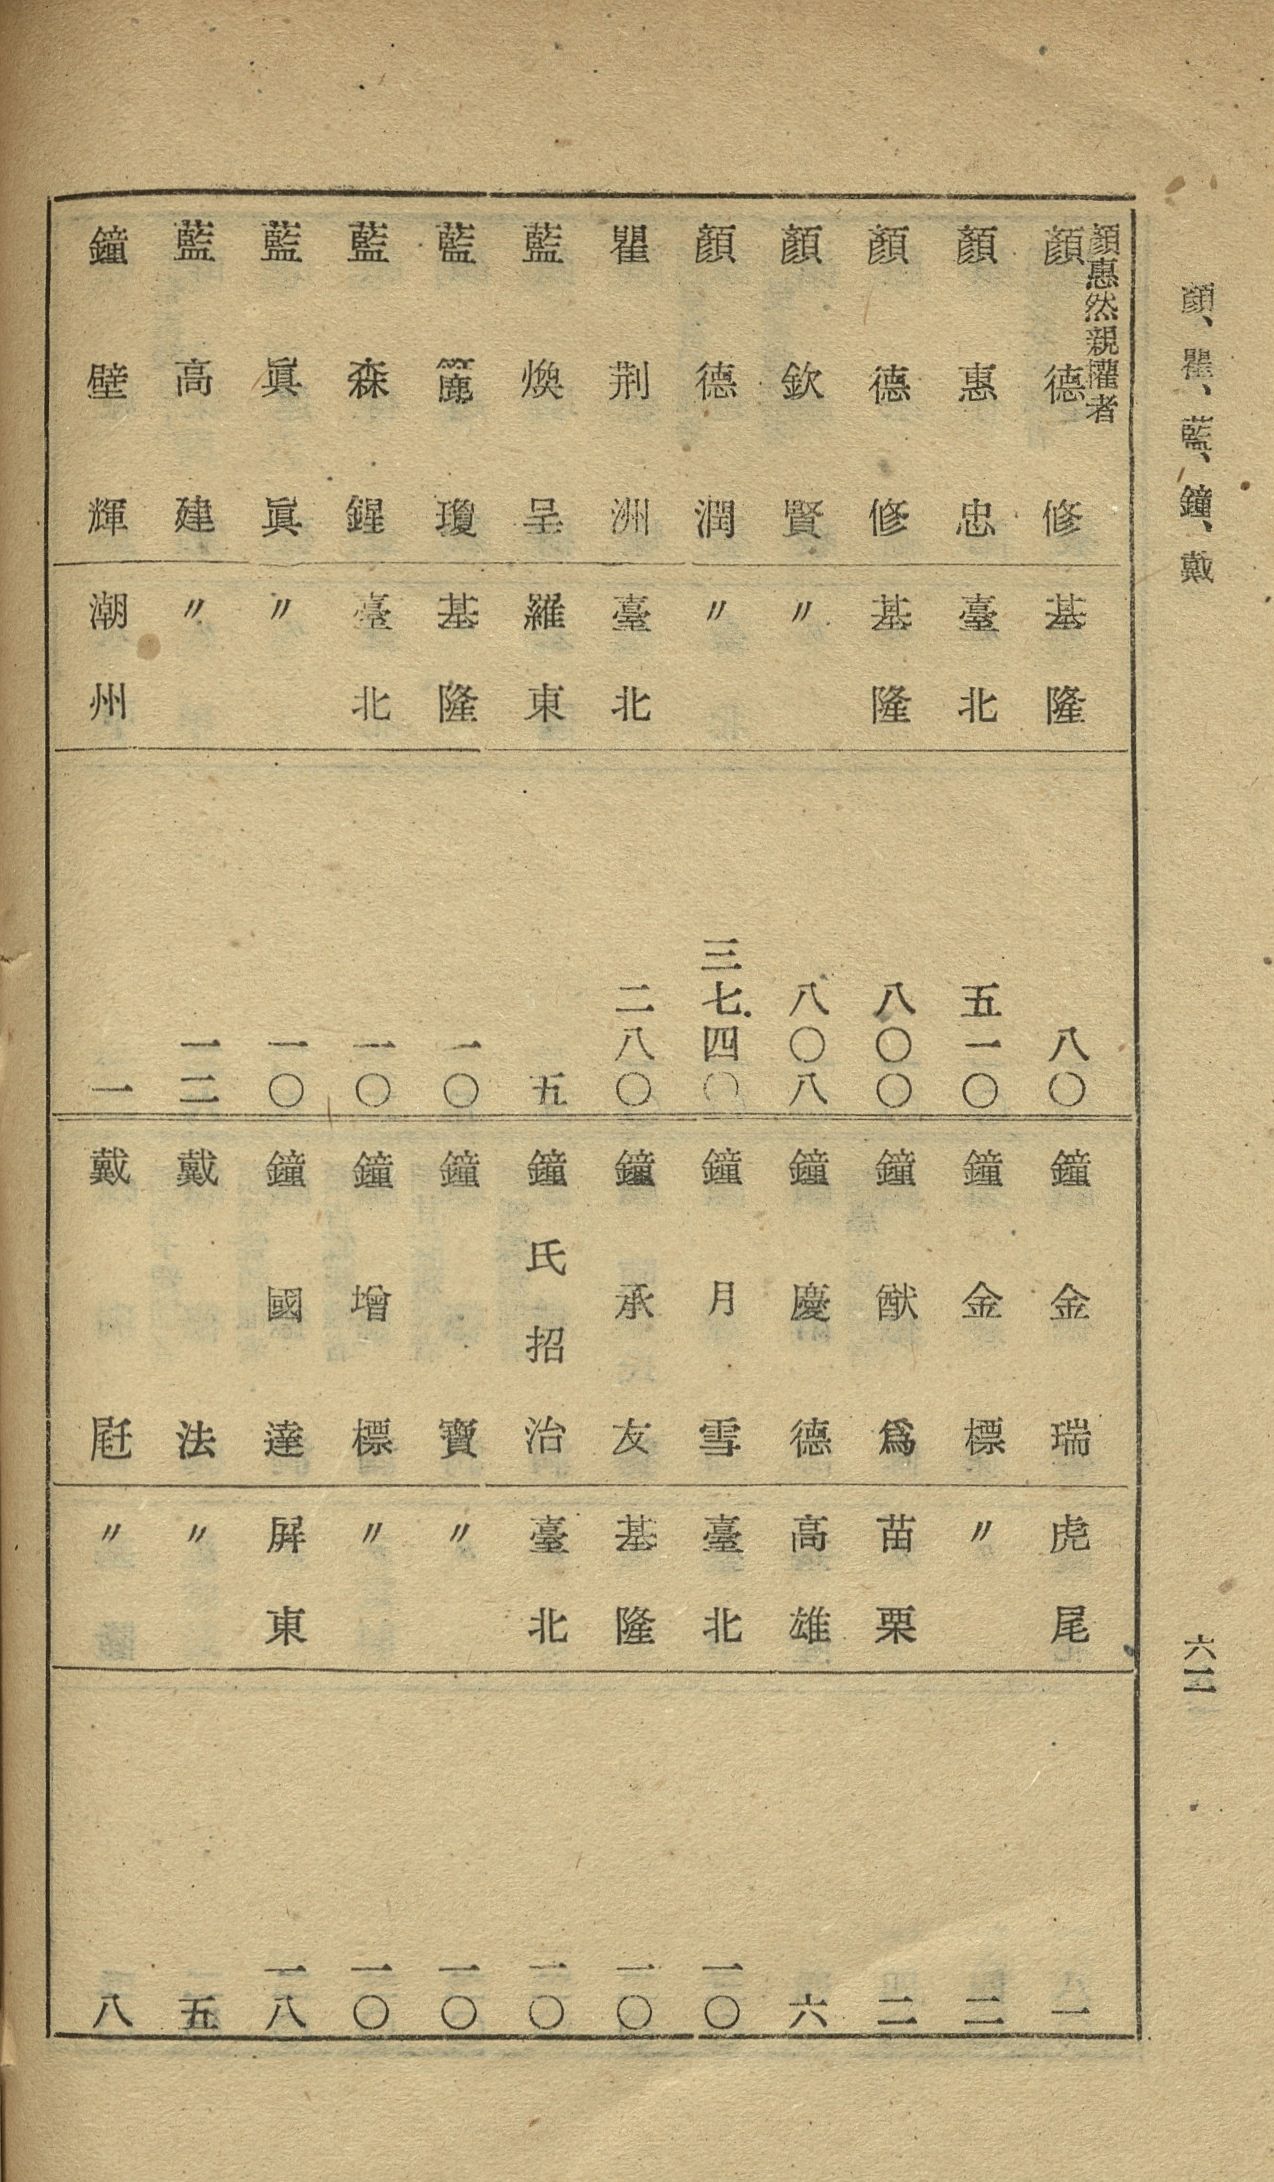 顏、瞿、藍、鐘、戴
六二
顏惠然親權者
顏德修 基隆 八〇
顏惠忠 臺北 五一〇
顏德修 基隆 八〇〇
顏欽賢 〃 八〇八
顏德潤 〃 三七四〇
瞿荆洲 臺北 二八〇
藍煥呈 羅東 五
藍瓊 基隆 一〇
藍森鍟 臺北 一〇
藍眞眞 〃 一〇
藍高建 〃 一二
鐘壁輝 潮州 一
鐘金瑞 虎尾 一
鐘金標 〃 二
鐘猷爲 苗栗 二
鐘慶德 高雄 六
鐘月雪 臺北 一〇
鐘承友 基隆 一〇
鐘氏招治 臺北 一〇
鐘寶 〃 一〇
鐘增標 〃 一〇
鐘國達 屏東 一八
戴法 〃 五
戴 〃 八